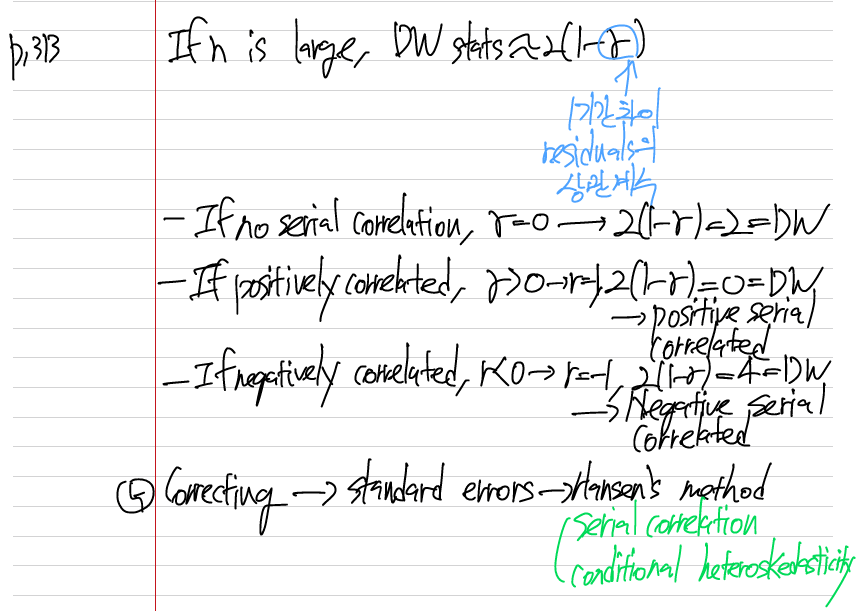 p.313
If n is large, DW stats ≈ 2(1-r)
1기간 차이
residuals의
상관계수
- If no serial correlation, r=0 → 2(1-r)=2=DW
- If positively correlated, r>0→r=1, 2(1-r)=0=DW
→ positive serial
correlated
- If negatively correlated, r<0→ r=-1, 2(1-r)=4=DW
→ Negative serial
correlated
⑤ Correcting → standard errors → Hansen's method
serial correlation
conditional heteroskedasticity